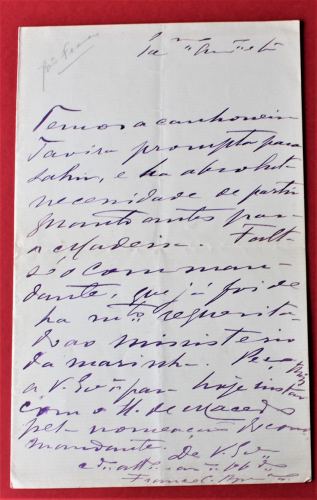 Temos a canhoneira
Tavira prompta para
sahir, e ha absoluta
necessidade de partir
quanto antes para
a Madeira. Falta
só o comman-
dante, que já foi de
ha mto requerita-
do ao ministerio
da marinha. Peço
a V. Exª para hoje instar
com o H. de Macedo
pela nomeação do com-
mandante. De V. Exª